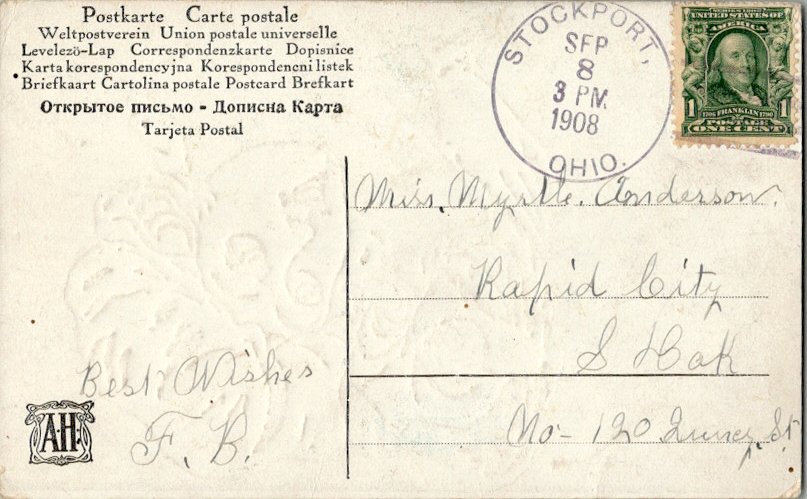 Postkarte Carte postale
Weltpostverein Union postale universelle
Levelező-Lap Correspondenzkarte Dopisnice
Karta korespondencyjna Korespondencni listek
Briefkaart Cartolina postale Postcard Brefkart
Открытое письмо - Дописна Карта
Tarjeta Postal
STOCKPORT,
SEP
8
3 PM
1908
OHIO.
SERIES 1902
UNITED STATES OF
AMERICA
1 1706 FRANKLIN 1790 1
POSTAGE
ONE CENT
Miss. Myrtle. Anderson.
Rapid City
S Dak
No - 120 Quincy St
Best Wishes
F. B.
A.H.